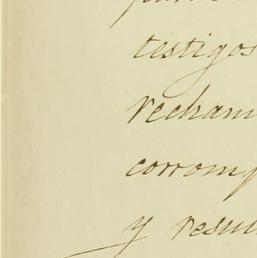 testigos
recham
corromp
y resu